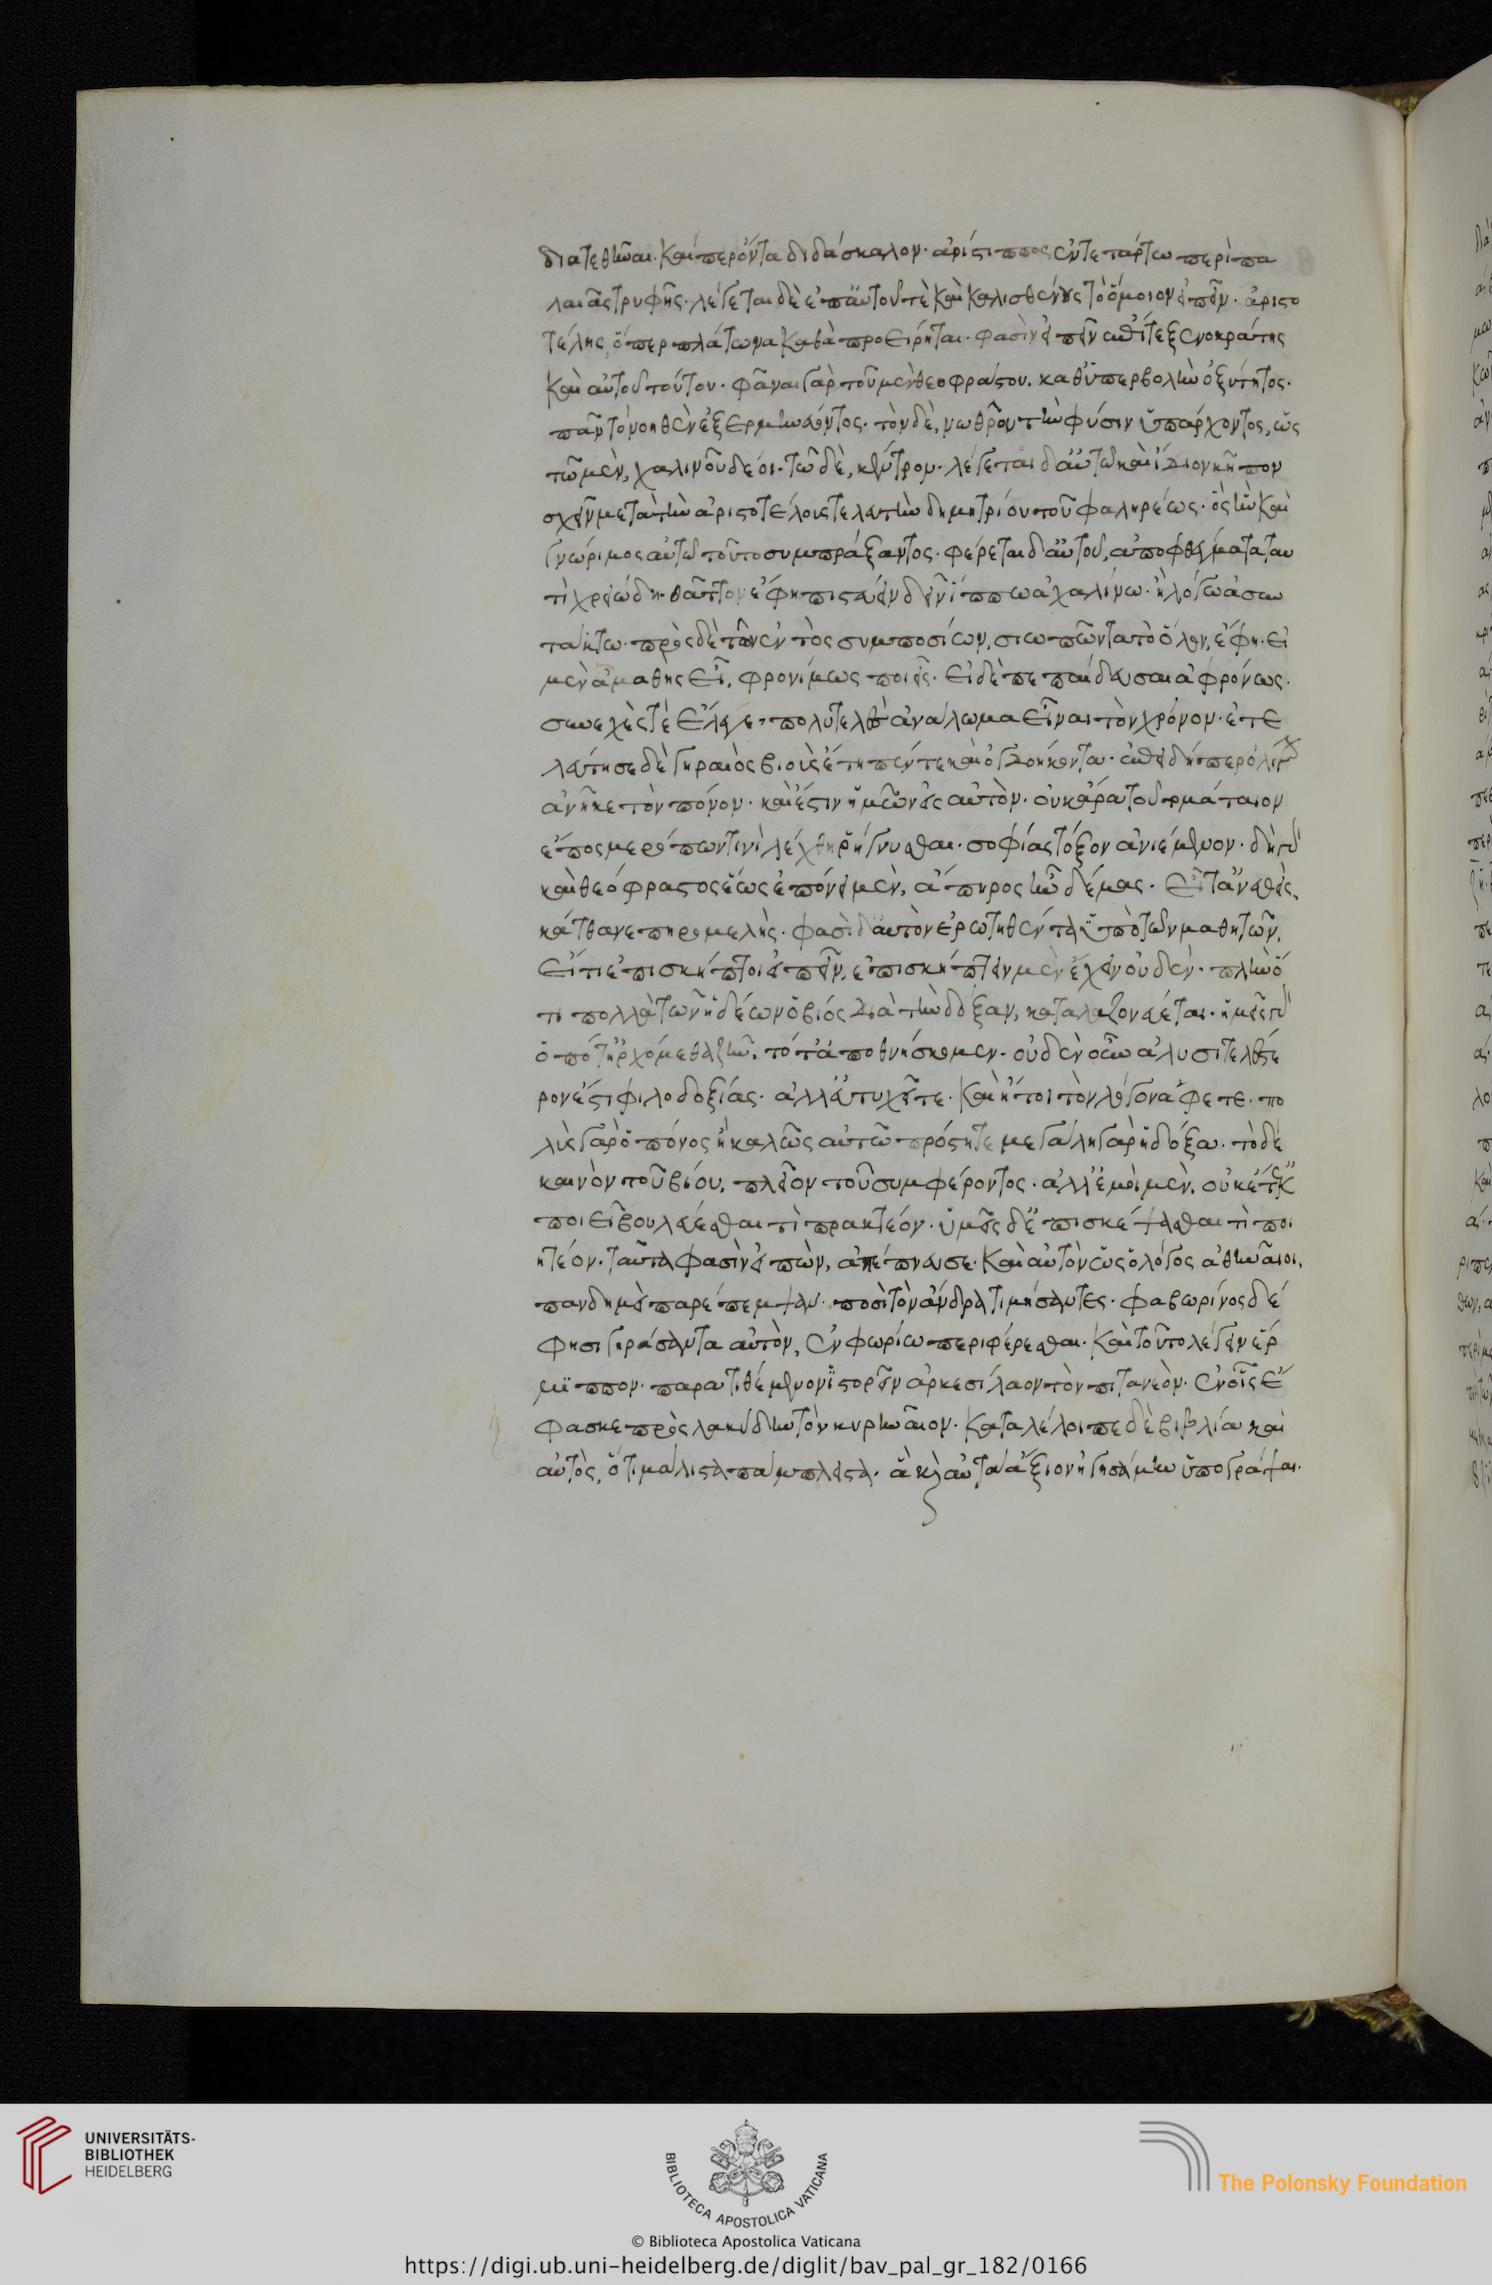 διατεθῆναι. καίπερ ὄντα διδάσκαλον. ἀρίστιππος ἐν τετάρτω περὶ πα
λαιᾶς τρυφῆς. λέγεται δὲ ἐπ' αὐτοῦ τὲ καὶ καλισθένους τὸ ὅμοιον εἰπεῖν. ἀριστο
τέλης, ὅπερ πλάτωνα καθὰ προείρηται. φασὶν εἰπεῖν ἐπί τε ξενοκράτης
καὶ αὐτοῦ τούτου. φᾶναι γὰρ τοῦ μὲν θεοφράστου. καθ' ὑπερβολὴν ὀξύτητος.
πᾶν τὸ νοηθὲν ἐξερμηνεύοντος. τὸν δὲ, νωθροῦ τὴν φύσιν ὑπάρχοντος, ὡς
τῶ μὲν, χαλινοῦ δέοι. τῶ δὲ, κέντρου. λέγεται δ' αὐτῶ καὶ ἴδιον κῆπον
σχεῖν μετὰ τὴν ἀριστοτέλους τελευτὴν δημητρίου τοῦ φαληρέως. ὃς ἦν καὶ
γνώριμος αὐτῶ τοῦτο συμπράξαντος. φέρεται δ' αὐτοῦ, ἀποφθέγματα ταυ
τὶ χρειώδη. θᾶττον ἔφη πιστεύειν δεῖν ἵππω ἀχαλίνω. ἢ λόγω ἀσυν
τάκτω. πρὸς δὲ τὸν ἐν τὸς συμποσίων, σιωπῶντα τὸ ὅλον, ἔφη. εἰ
μὲν ἀμαθὴς εἶ, φρονίμως ποιεῖς. εἰ δὲ πεπαίδευσαι ἀφρόνως.
συνεχὲς τὲ ἔλεγε, πολυτελὲς ἀνάλωμα εἶναι τὸν χρόνον. ἐτε
λεύτησε δὲ γηραιὸς βιοὺς ἔτη πέντε καὶ ὀγδοήκοντα. ἐπειδήπερ ὀλίγον
ἀνῆκε τὸν πόνον. καὶ ἔστιν ἡμῶν εἰς αὐτὸν. οὐκ ἄρα τοῦτο μάταιον
ἔπος μερόπων τινὶ λέχθη ῥήγνυσθαι. σοφίας τόξον ἀνιέμενον. δὴ γὰρ
καὶ θεόφραστος ἕως ἐπόνει μὲν, ἄπηρος ἦν δέμας. εἶτ' ἀνεθεὶς,
κάτθανε πηρομελὴς. φασὶ δ' αὐτὸν ἐρωτηθέντα ὑπὸ τῶν μαθητῶν,
εἴ τι ἐπισκήπτοι εἰπεῖν, ἐπισκήπτειν μὲν ἔχειν οὐδὲν. πλὴν ὅ
τι πολλὰ τῶν ἡδέων ὁ βίος διὰ τὴν δόξαν, καταλαζονεύεται. ἡμεῖς γὰρ
ὁπότ' ἠρχόμεθα ζῆν, τότ' ἀποθνήσκομεν. οὐδὲν οὖν ἀλυσιτελέστε
ρον ἐστὶ φιλοδοξίας. ἀλλ' εὐτυχεῖτε. καὶ ἤτοι τὸν λόγον ἄφετε. πο
λὺς γὰρ ὁ πόνος ἢ καλῶς αὐτῶ πρόστητε μεγάλη γὰρ ἡ δόξα. τὸ δὲ
καινὸν τοῦ βίου, πλεῖον τοῦ συμφέροντος. ἀλλ' ἐμοὶ μὲν, οὐκέτ' ἐκ
ποιεῖ βουλεύεσθαι τὶ πρακτέον. ὑμεῖς δ' ἐπισκέψασθαι τὶ ποι
ητέον. ταῦτα φασὶν εἰπὼν, ἀπέπνευσε. καὶ αὐτὸν ὡς ὁ λόγος ἀθηναῖοι,
πανδημεὶ παρέπεμψαν. ποσὶ τὸν ἄνδρα τιμήσαντες. φαβωρίνος δέ
φησι γηράσαντα αὐτὸν, ἐν φωρίω περιφέρεσθαι. καὶ τοῦτο λέγειν ἕρ
μιππον. παρατιθέμενον ἱστορεῖν ἀρκεσίλαον τὸν πιτανεὸν. ἐν οἷς ἔ
φασκε πρὸς λακύδην τὸν κυρηναῖον. καταλέλοιπε δὲ βιβλία καὶ
αὐτὸς, ὅτι μάλιστα παμπλεῖστα. ἃ καὶ αὐτὰ ἄξιον ἡγησάμην ὑπογράψαι.
UNIVERSITÄTS-
BIBLIOTHEK
HEIDELBERG
BIBLIOTECA APOSTOLICA VATICANA
The Polonsky Foundation
© Biblioteca Apostolica Vaticana
https://digi.ub.uni-heidelberg.de/diglit/bav_pal_gr_182/0166